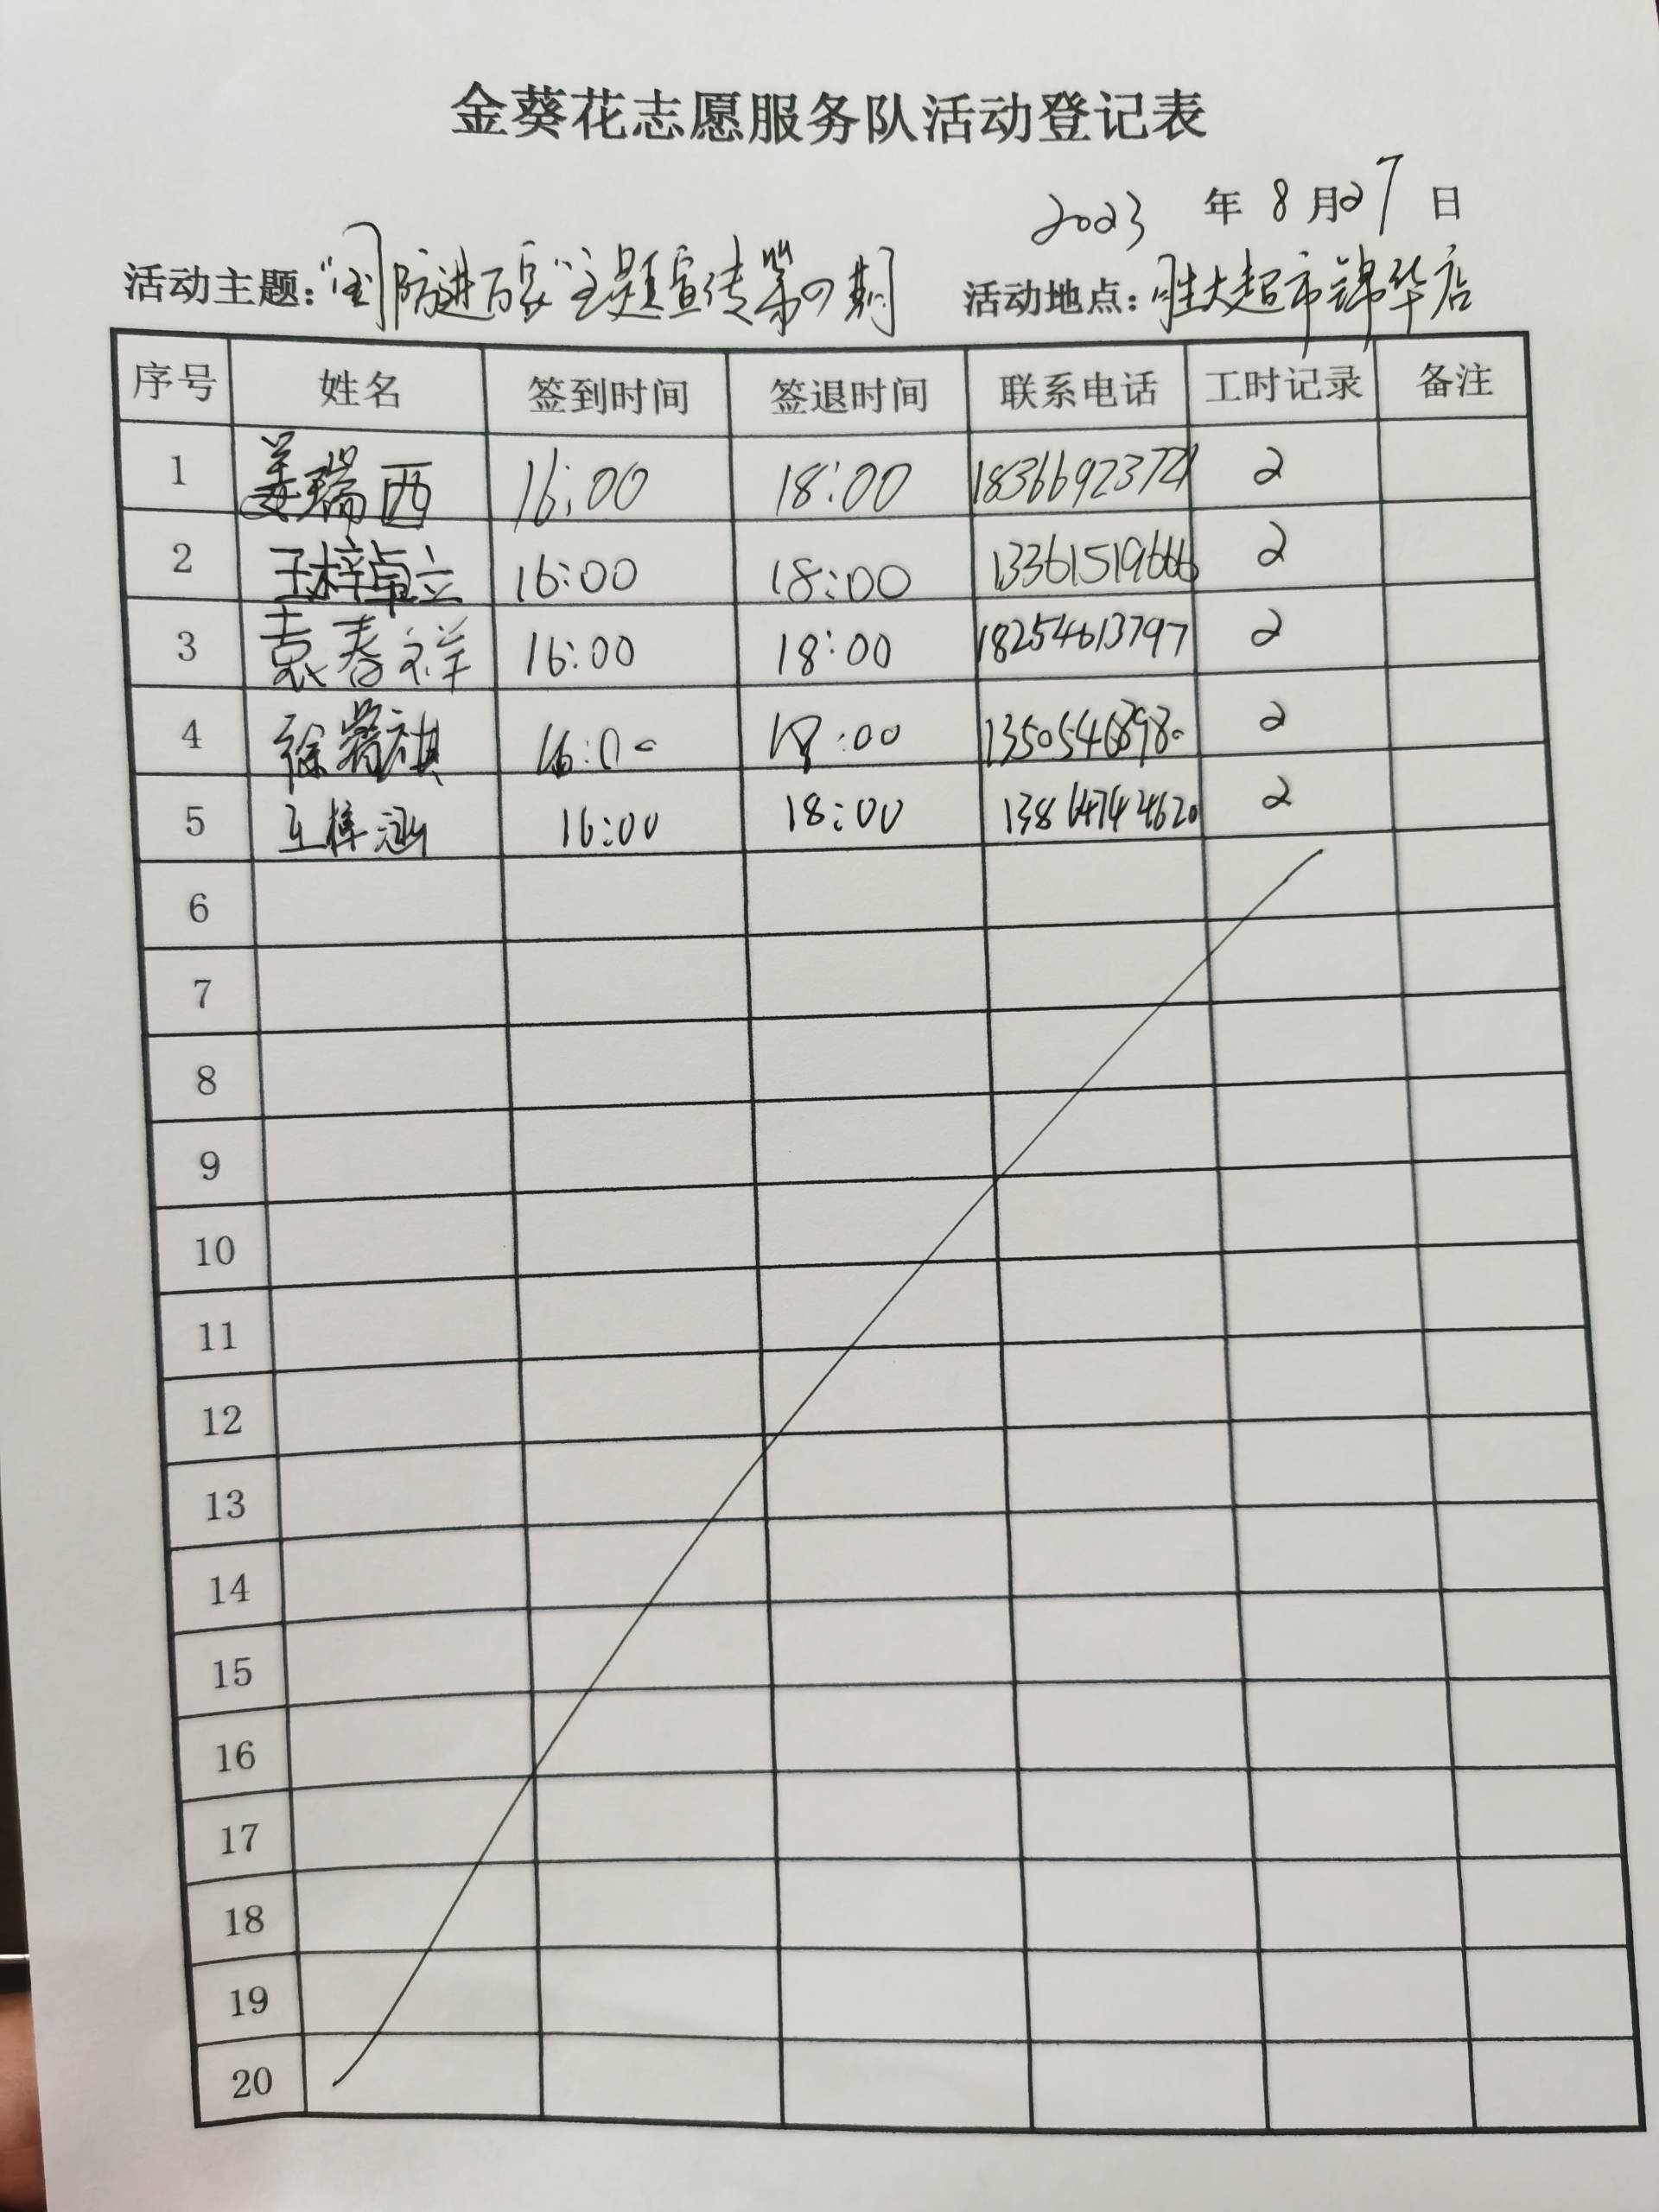 金葵花志愿服务队活动登记表
2023 年 8 月 27 日
活动主题：“国防进万家”主题宣传第四期 活动地点：胜大超市锦华店
序号 姓名 签到时间 签退时间 联系电话 工时记录 备注
1 姜瑞西 16:00 18:00 2
2 王梓卓立 16:00 18:00 13361519666 2
3 袁春祥 16:00 18:00 18254613797 2
4 徐睿祺 16:00 18:00 2
5 王梓涵 16:00 18:00 13864744620 2
6
7
8
9
10
11
12
13
14
15
16
17
18
19
20